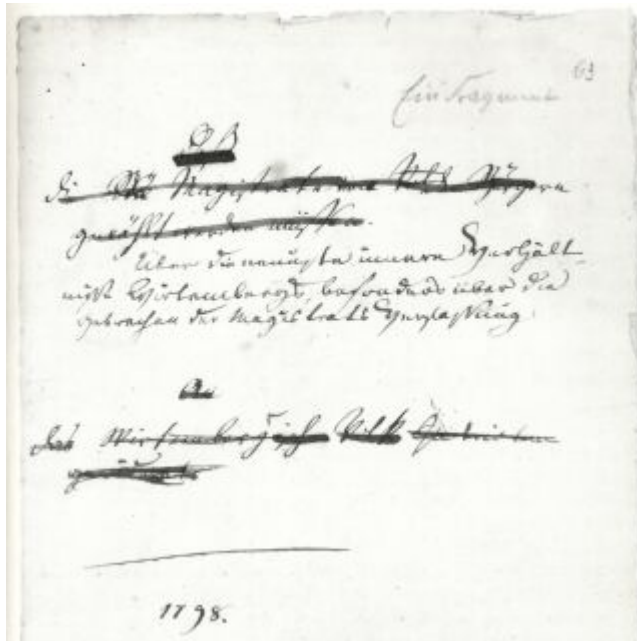 63
Ein Fragment
Daß
die Magistrate Bürgern
gewählt werden müssen.
Über die neueste innere Verhält-
nisse Wirtembergs, besonders über die
Gebrechen der Magistrats Verfassung
An
das Wirtembergische Volk
1798.